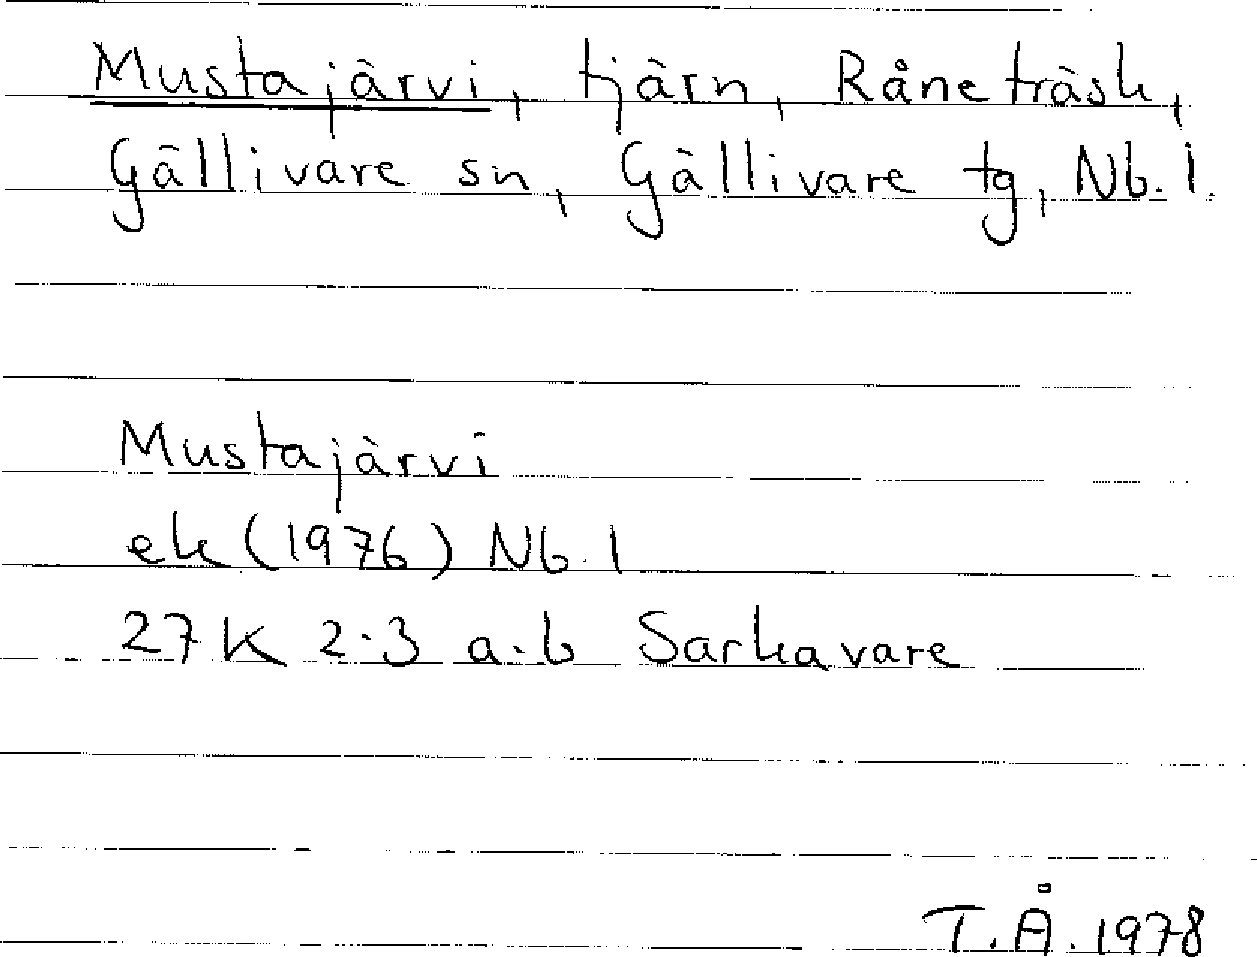 Mustajärvi, tjärn, Råneträsk,
Gällivare sn, Gällivare tg, Nb. l.
Mustajärvi
ek (1976) Nb. l
27K 2-3 a-b Sarkavare
T.Å. 1978